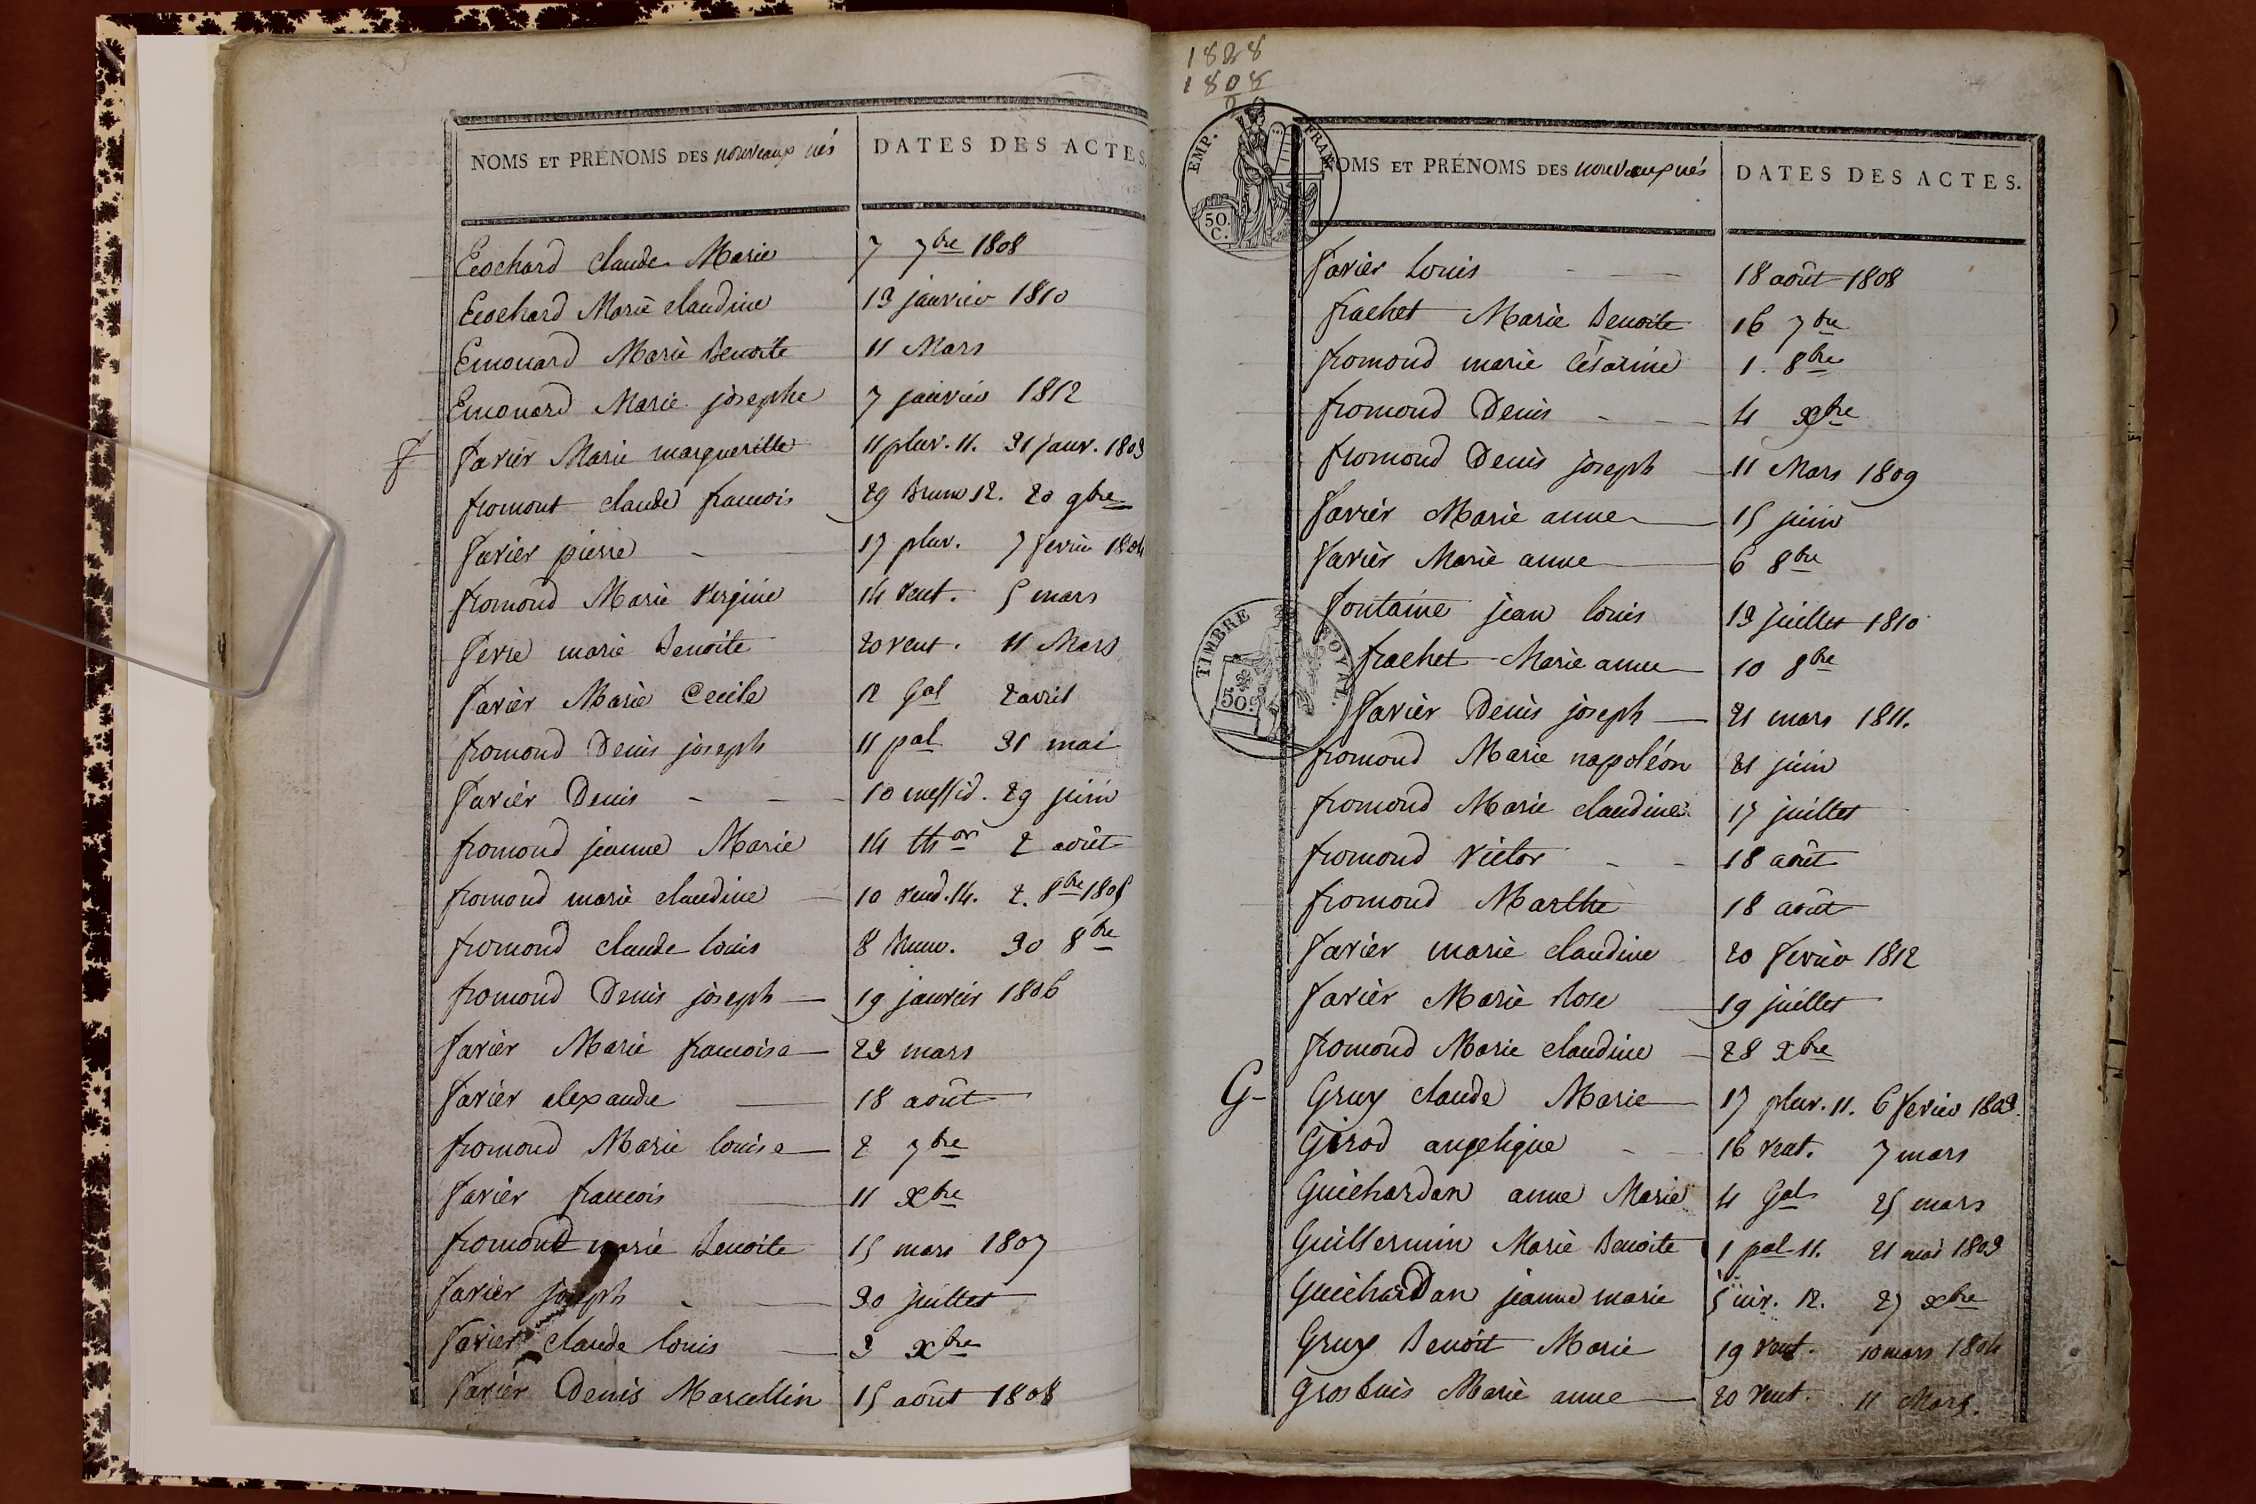 NOMS ET PRÉNOMS DES nouveaux nés DATES DES ACTES.
Ecochard claude Marie 7 7bre 1808
Ecochard Marie claudine 13 janvier 1810
Emonard Marie Benoite 11 Mars
Emonard Marie josephe 7 janvier 1812
F
favier Marie margueritte 11 pluv. 11. 31 janv. 1803
fromont claude francois 29 Brum 12. 20 9bre
favier pierre 17 pluv. 7 fevrier 1804
fromond Marie Virginie 14 vent. 5 mars
ferre marie Benoite 20 vent. 11 Mars
favier Marie Cecile 12 Gal 2 avril
fromond Denis joseph 11 pal 31 mai
favier Denis 10 messid. 29 juin
fromond jeanne Marie 14 thor 2 août
fromond marie claudine 10 vend. 14. 2. 8bre 1805
fromond claude louis 8 brum. 30 8bre
fromond Denis joseph 19 janvier 1806
favier Marie francoise 23 mars
favier alexandre 18 août
fromond Marie louise 2 7bre
favier francois 11 xbre
fromond marie Benoite 15 mars 1807
favier joseph 30 juillet
favier claude louis 3 xbre
favier Denis Marcellin 15 août 1808
1828
1808
EMP. FRAN.
50. C.
NOMS ET PRÉNOMS DES nouveaux nés DATES DES ACTES.
favier Louis 18 août 1808
frachet Marie Benoite 16 7bre
fromond marie Césarine 1. 8bre
fromond Denis 4 xbre
fromond Denis joseph 11 Mars 1809
favier Marie anne 15 juin
favier Marie anne 6 8bre
fontaine jean louis 13 juillet 1810
TIMBRE ROYAL.
50c
frachet Marie anne 10 8bre
favier Denis joseph 21 mars 1811.
fromond Marie napoléon 21 juin
fromond Marie claudine 17 juillet
fromond Victor 18 août
fromond Marthe 18 août
favier marie claudine 20 fevrier 1812
favier Marie Rose 19 juillet
fromond Marie claudine 28 xbre
G
Gruy claude Marie 17 pluv. 11. 6 fevrier 1803.
Girod angelique 16 vent. 7 mars
Guichardan anne Marie 4 Gal 25 mars
Guillermin Marie Benoite 1 pal 11. 21 mai 1803
Guichardan jeanne marie 5 niv. 12. 27 xbre
Gruy Benoit Marie 19 vent. 10 mars 1804
Grosbuis Marie anne 20 vent. 11 Mars.